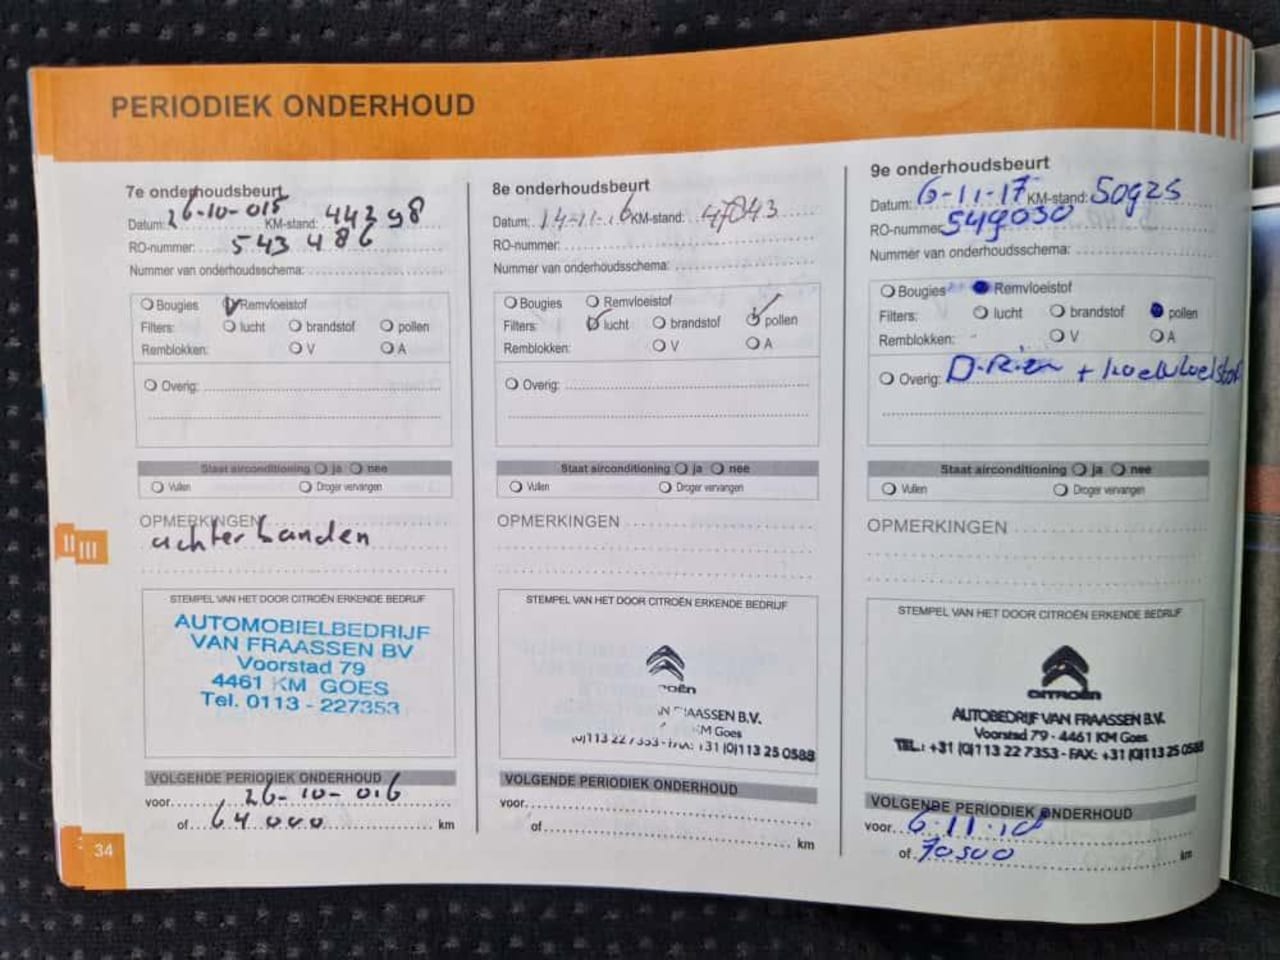 PERIODIEK ONDERHOUD
7e onderhoudsbeurt
Datum: 26-10-015 KM-stand: 44298
RO-nummer: 543486
Nummer van onderhoudsschema:
Bougies Remvloeistof
Filters: lucht brandstof pollen
Remblokken: V A
Overig:
Staat airconditioning ja nee
Vullen Droger vervangen
OPMERKINGEN
achter banden
STEMPEL VAN HET DOOR CITROËN ERKENDE BEDRIJF
AUTOMOBIELBEDRIJF
VAN FRAASSEN BV
Voorstad 79
4461 KM GOES
Tel. 0113 - 227353
VOLGENDE PERIODIEK ONDERHOUD
voor 26-10-016
of 64000 km
8e onderhoudsbeurt
Datum: 14-11-16 KM-stand: 47843
RO-nummer:
Nummer van onderhoudsschema:
Bougies Remvloeistof
Filters: lucht brandstof pollen
Remblokken: V A
Overig:
Staat airconditioning ja nee
Vullen Droger vervangen
OPMERKINGEN
STEMPEL VAN HET DOOR CITROËN ERKENDE BEDRIJF
AASSEN B.V.
KM Goes
+31 (0)113 25 0588
VOLGENDE PERIODIEK ONDERHOUD
voor
of km
9e onderhoudsbeurt
Datum: 6-11-17 KM-stand: 50925
RO-nummer: 549030
Nummer van onderhoudsschema:
Bougies Remvloeistof
Filters: lucht brandstof pollen
Remblokken: V A
Overig: + koelvloeistof
Staat airconditioning ja nee
Vullen Droger vervangen
OPMERKINGEN
STEMPEL VAN HET DOOR CITROËN ERKENDE BEDRIJF
CITROËN
AUTOBEDRIJF VAN FRAASSEN B.V.
Voorstad 79 - 4461 KM Goes
TEL.: +31 (0)113 22 7353 - FAX: +31 (0)113 25 0588
VOLGENDE PERIODIEK ONDERHOUD
voor 6-11-18
of 70500 km
II III
34